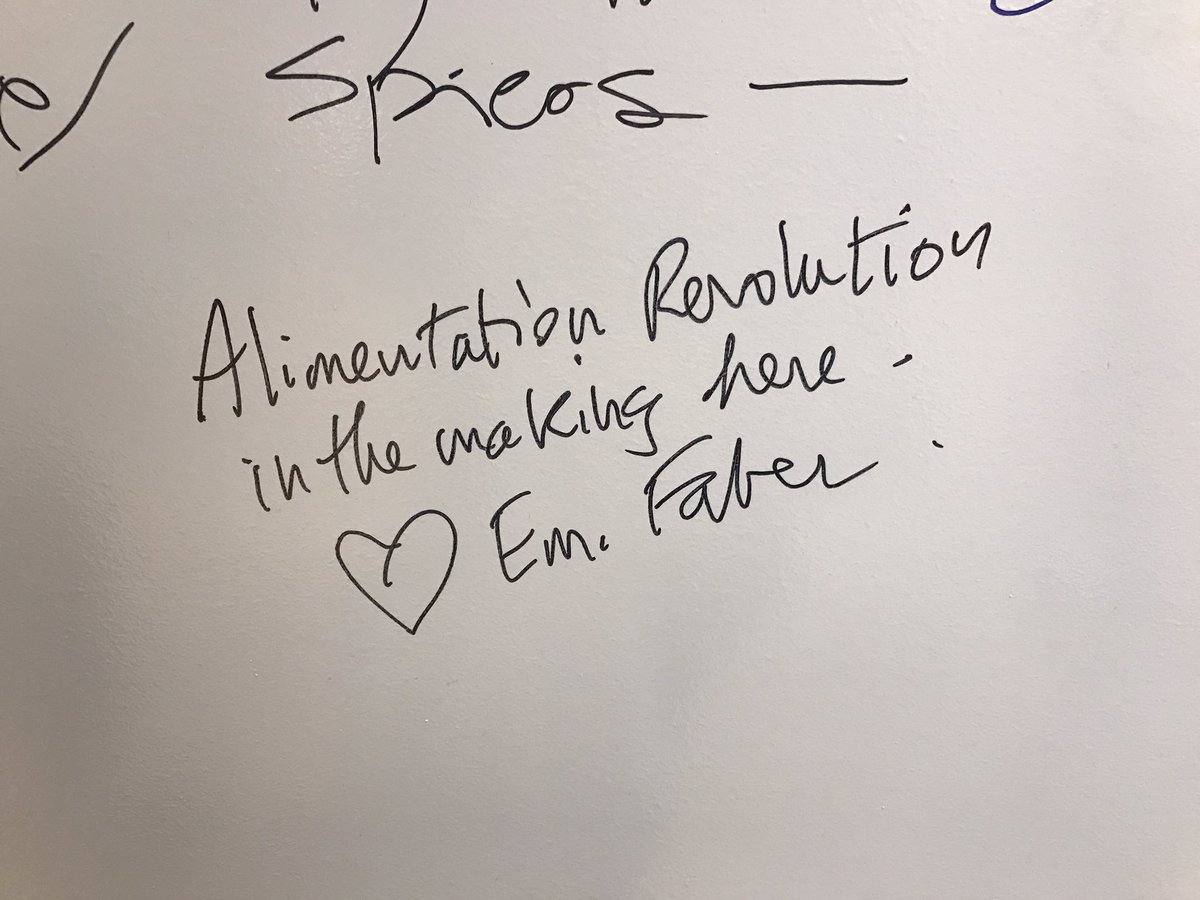 Spices —
Alimentation Revolution
in the making here.
Em. Faber.